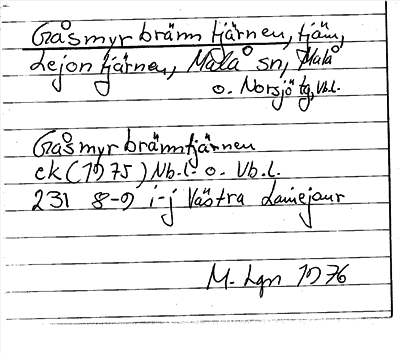 Gåsmyrbränntjärnen, tjärn,
Lejontjärnen, Malå sn, Malå
o. Norsjö tg, Vb.l.
Gåsmyrbränntjärnen
ek (1975) Nb.l. o. Vb.l.
231 8-9 i-j Västra Lainejaur
M. Lgn 1976